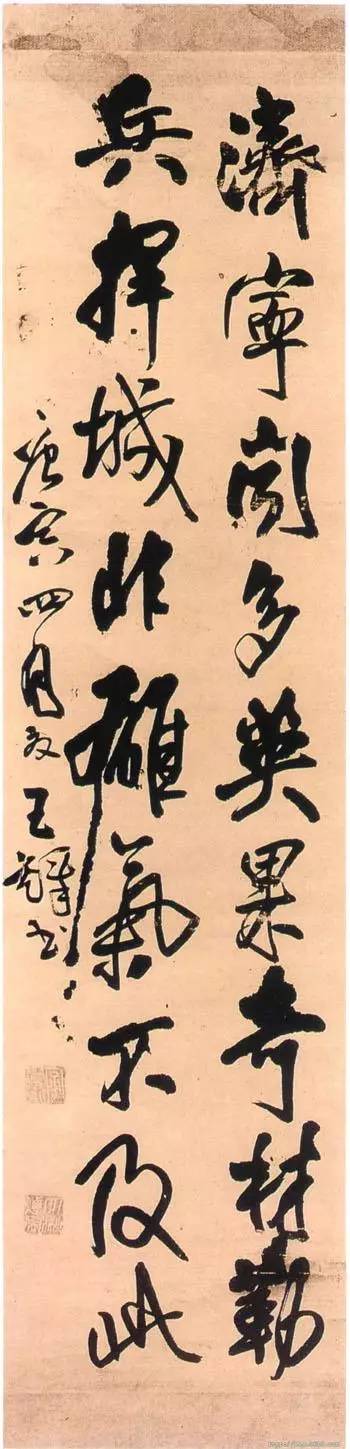 濟寧多英果奇材勒
兵捍城非雄氣不及此
庚寅四月夜王鐸書